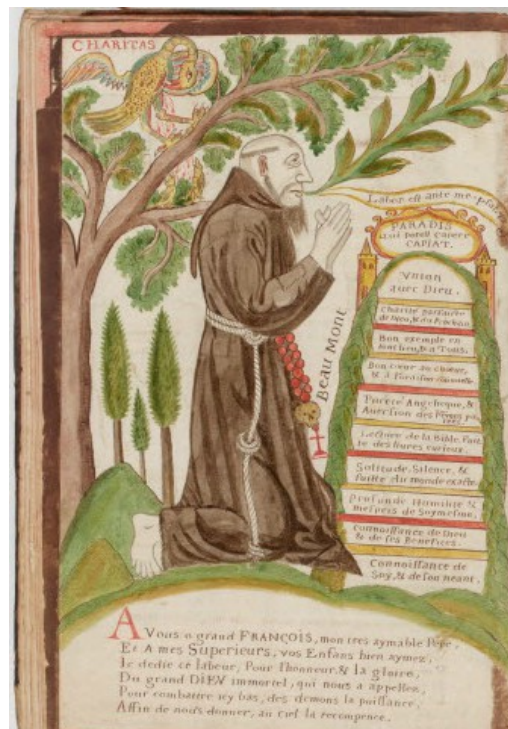 CHARITAS
Labor est ante me. psalm
PARADIS
qui potest capere
CAPIAT.
Vnion
avec Dieu.
Charité parfaitte
de Dieu, & du Prochain.
Bon exemple en
tout lieu, & à Tous.
Bon cœur au chœur,
& à
Pureté Angelique, &
Auersion des
Lecture de la Bible, Fuit
te des liures curieux.
Solitude, Silence, &
fuitte du monde exacte.
Profonde Humilité &
mespris de Soymesme.
Connoissance de Dieu
& de ses Benefices.
Connoissance de
Soy, & de son neant.
Beau Mont
A Vous o grand FRANÇOIS, mon tres aymable Pere,
Et A mes Superieurs, vos Enfans bien aymez,
Ie dedie cé labeur, Pour l'honneur & la gloire,
Du grand DIEV immortel, qui nous a appellez,
Pour combattre icy bas, des demons la puissance,
Affin de nous donner, au ciel la recompence.